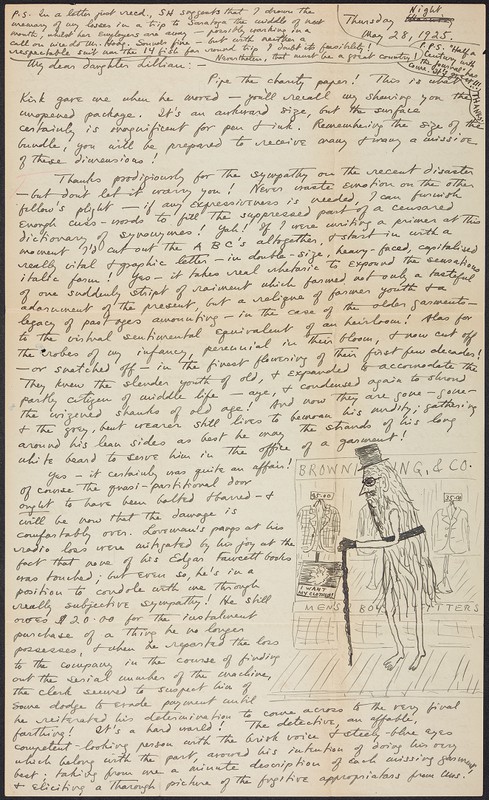 P.S. In a letter, just recd., SH suggests that I drown the
memory of my losses in a trip to Saratoga the middle of next
month, whilst her employers are away — possibly working in a
call on die Mr. Hoag. Sounds fine — but with neither a
respectable suit nor the 14 fish for round trip I doubt its feasibility!
Nevertheless, that must be a great country!
Thursday Night
May 28, 1925.
P.P.S. Half a
Century with
the
came
My dear daughter Lillian:—
Pipe the charity paper! This is what
Kirk gave me when he moved — you'll recall my shewing you the
unopened package. It's an awkward size, but the surface
certainly is magnificent for pen & ink. Remembering the size of the
bundle, you will be prepared to receive many & many a missive
of these dimensions!
Thanks prodigiously for the sympathy on the recent disaster
— but dont let it worry you! Never waste emotion on the other
fellow's plight — if any expressiveness is needed, I can furnish
enough cuss-words to fill the suppressed part of a censored
dictionary of synonymes! Yah! If I were writing a primer at this
moment I'd cut out the A B C's altogether, & start in with a
really vital & graphic letter — in double-size, heavy-faced, capitalised
italic form! Yes — it takes real rhetoric to expound the sensations
of one suddenly stript of raiment which formed not only a tasteful
adornment of the present, but a relique of former youth & a
legacy of past ages amounting — in the case of the older garments —
to the virtual sentimental equivalent of an heirloom! Alas for
the robes of my infancy, perennial in their bloom, & now cut off
— or snatched off — in the finest flowering of their first few decades!
They knew the slender youth of old, & expanded to accomodate the
portly citizen of middle life — aye, & condensed again to shroud
the wizened shanks of old age! And now they are gone — gone —
& the grey, bent wearer still lives to bemoan his nudity; gathering
around his lean sides as best he may the strands of his long
white beard to serve him in the office of a garment!
Yes — it certainly was quite an affair!
Of course the quasi-partitional door
ought to have been bolted & barred — &
will be now that the damage is
comfortably over. Loveman's pangs at his
radio loss were mitigated by his joy at the
fact that none of his Edgar Fawcett books
was touched; but even so, he's in a
position to condole with me through
really subjective sympathy! He still
owes $20.00 for the instalment
purchase of a thing he no longer
possesses, & when he reported the loss
to the company in the course of finding
out the serial number of the machine,
the clerk seemed to suspect him of
some dodge to evade payment until
he reiterated his determination to come across to the very final
farthing! It's a hard world! The detective, an affable,
competent-looking person with the brisk voice & steely-blue eyes
which belong with the part, avowed his intention of doing his very
best; taking from me a minute description of each missing garment,
& eliciting a thorough picture of the fugitive appropriators from Mrs.
BROWN ING, & CO.
35.00
35.00
I WANT
MY CLOTHES!
MENS BOY TTERS